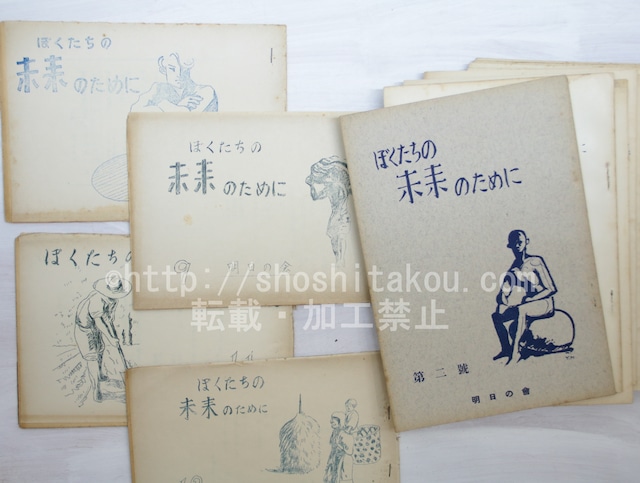 ぼくたちの
未来のために
ぼくたちの
未来のために
明日の会
ぼくたちの
未来のために
第二號
明日の會
ぼくたちの
ぼくたちの
未来のために
©http://shoshitakou.com/
転載・加工禁止